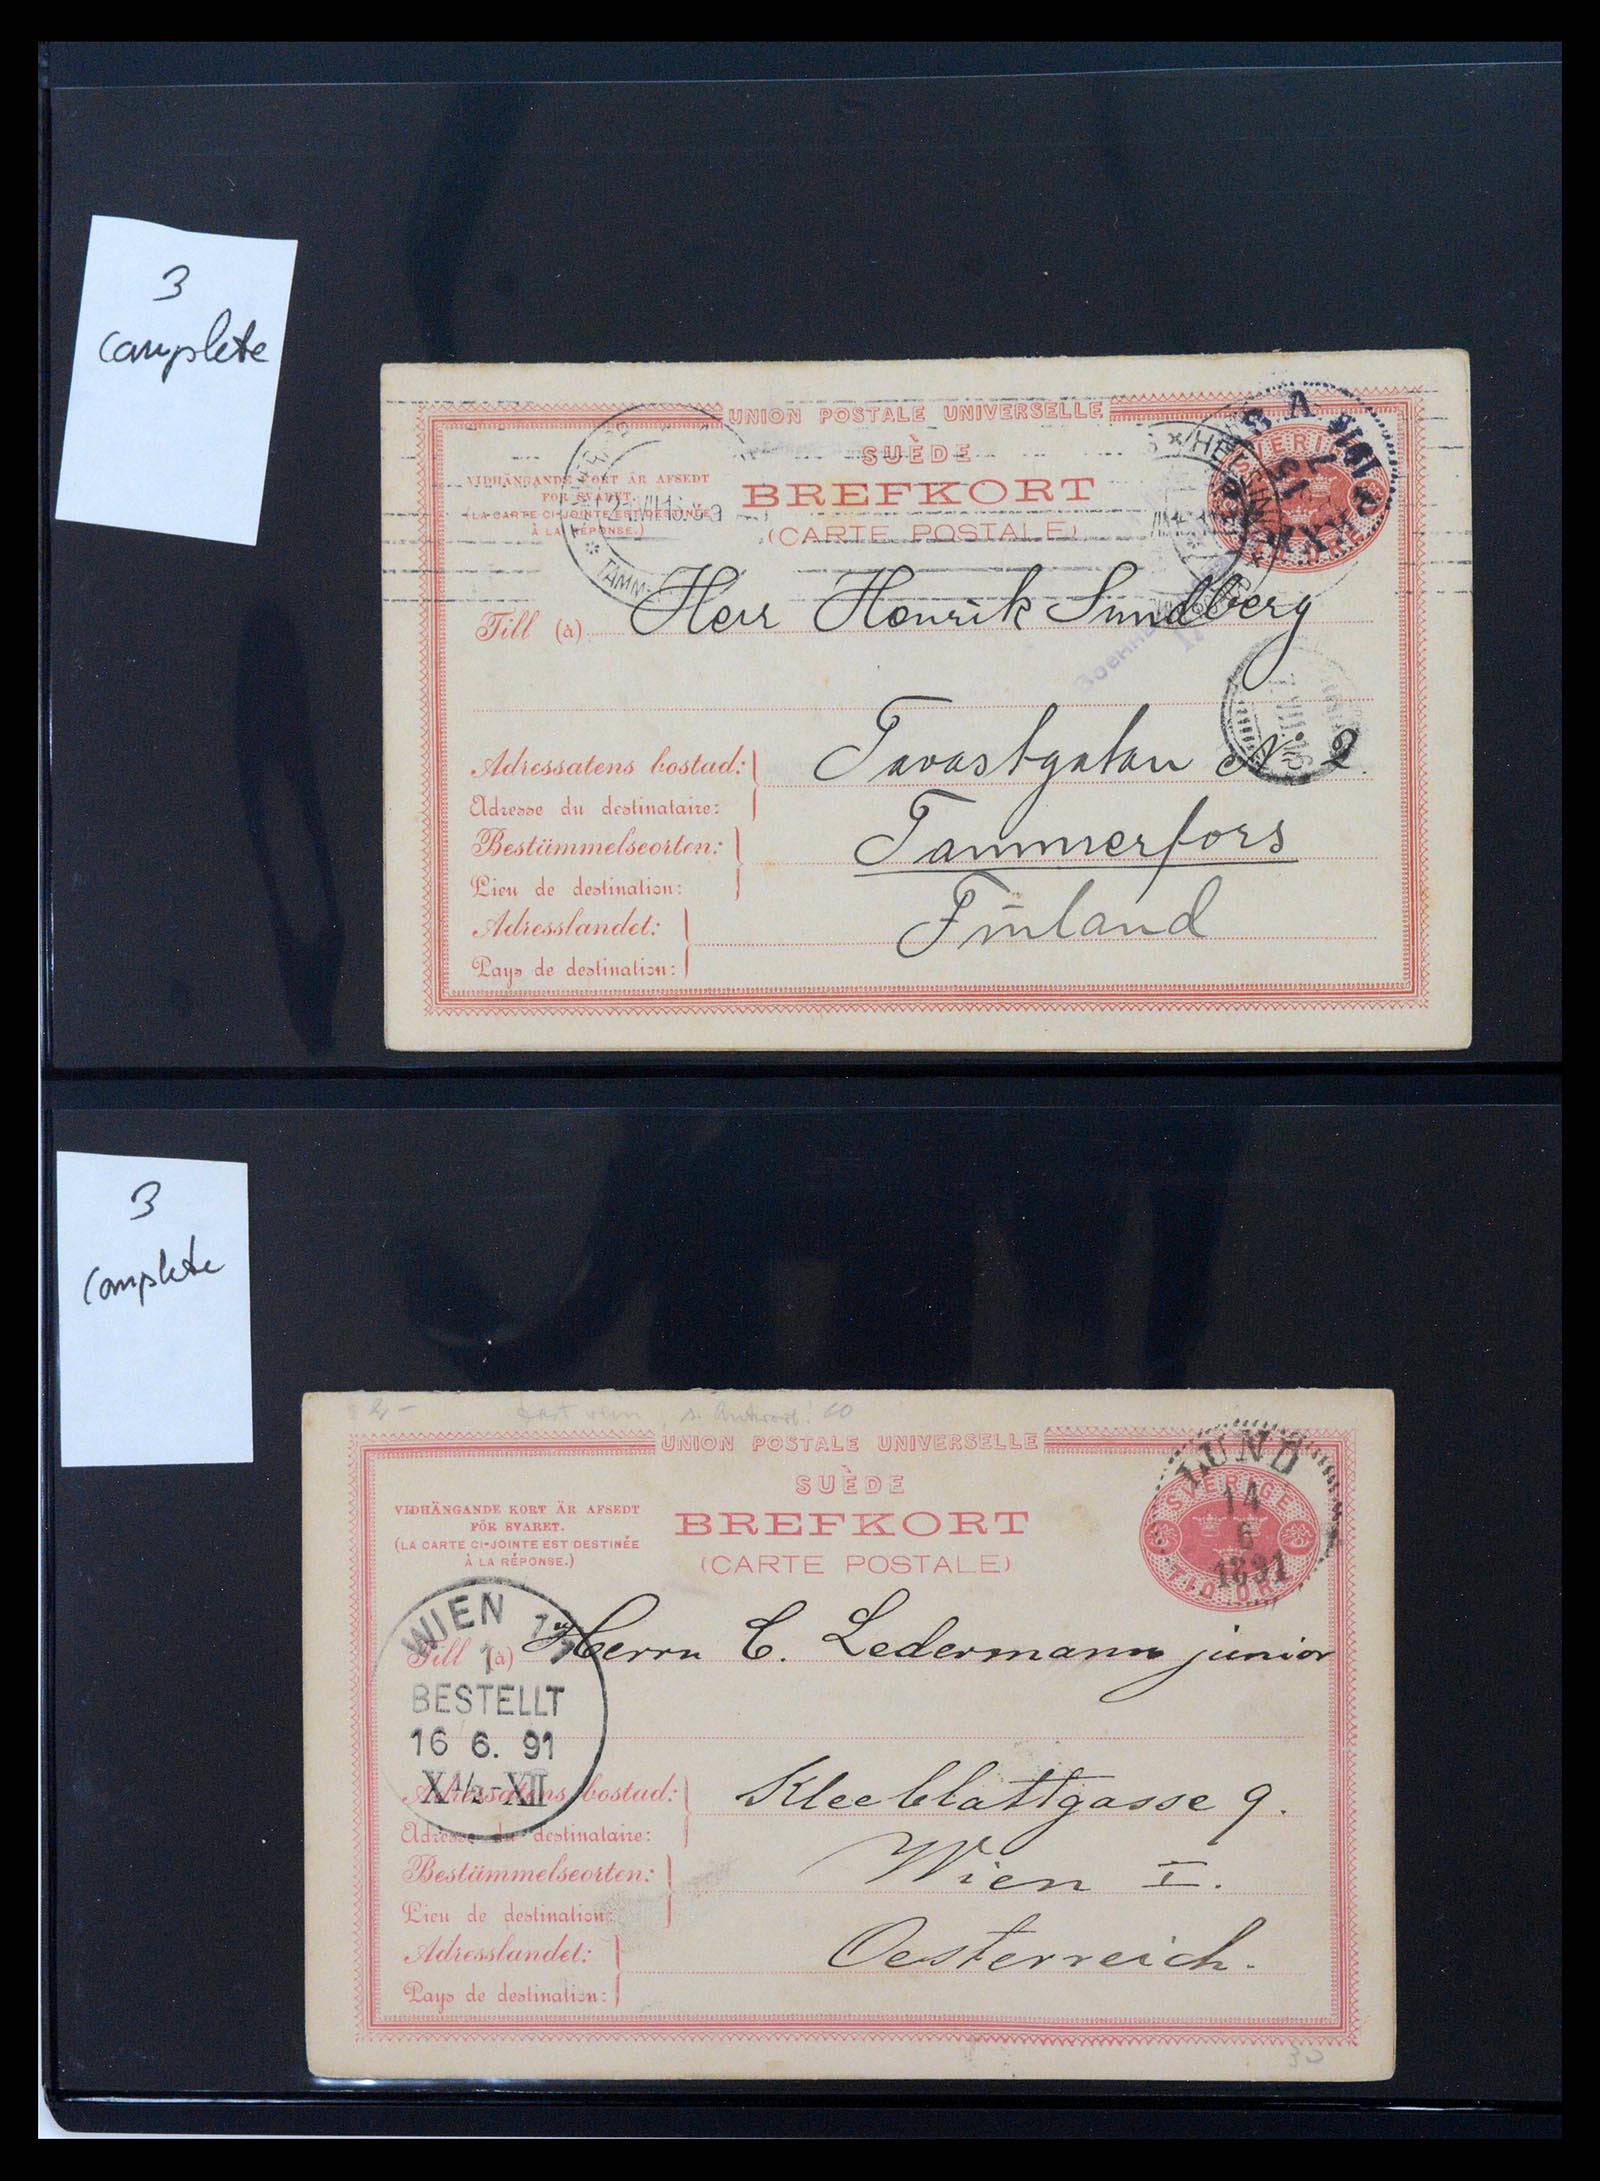 3
complete
UNION POSTALE UNIVERSELLE
SUÈDE
VIDHÄNGANDE KORT ÄR AFSEDT
FÖR SVARET.
(LA CARTE CI-JOINTE EST DESTINÉE
À LA RÉPONSE.)
BREFKORT
(CARTE POSTALE)
Till (à) Herr Henrik Sundberg
Adressatens bostad: Tavastgatan N 2.
Adresse du destinataire:
Bestämmelseorten: Tammerfors
Lieu de destination:
Adresslandet: Finland
Pays de destination:
3
complete
UNION POSTALE UNIVERSELLE
SUÈDE
VIDHÄNGANDE KORT ÄR AFSEDT
FÖR SVARET.
(LA CARTE CI-JOINTE EST DESTINÉE
À LA RÉPONSE.)
BREFKORT
(CARTE POSTALE)
LUND
14
6
1891
SVERIGE
TIO ÖRE
WIEN
1
BESTELLT
16 6. 91
X½-XII
Till (à) Herrn C. Ledermann junior
Adressatens bostad: Kleeblattgasse 9.
Adresse du destinataire:
Bestämmelseorten: Wien I.
Lieu de destination:
Adresslandet: Oesterreich.
Pays de destination:
30